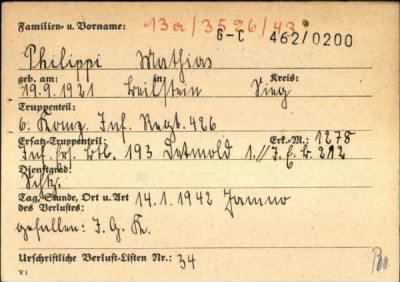 Familien- u. Vorname: 13a/3526/43
G-C 462/0200
Philippi Mathias
geb. am: in: Kreis:
19.9.1921 Beilstein Sieg
Truppenteil:
6. Komp. Inf. Regt. 426
Ersatz-Truppenteil: Erk.-M.: 1278
Inf. Ers. Btl. 193 Detmold 1./J.E.B. 212
Dienstgrad:
Schtz.
Tag, Stunde, Ort u. Art 14.1.1942
des Verlustes:
gefallen: J. G. K.
Urschriftliche Verlust-Listen Nr.: 34
V1